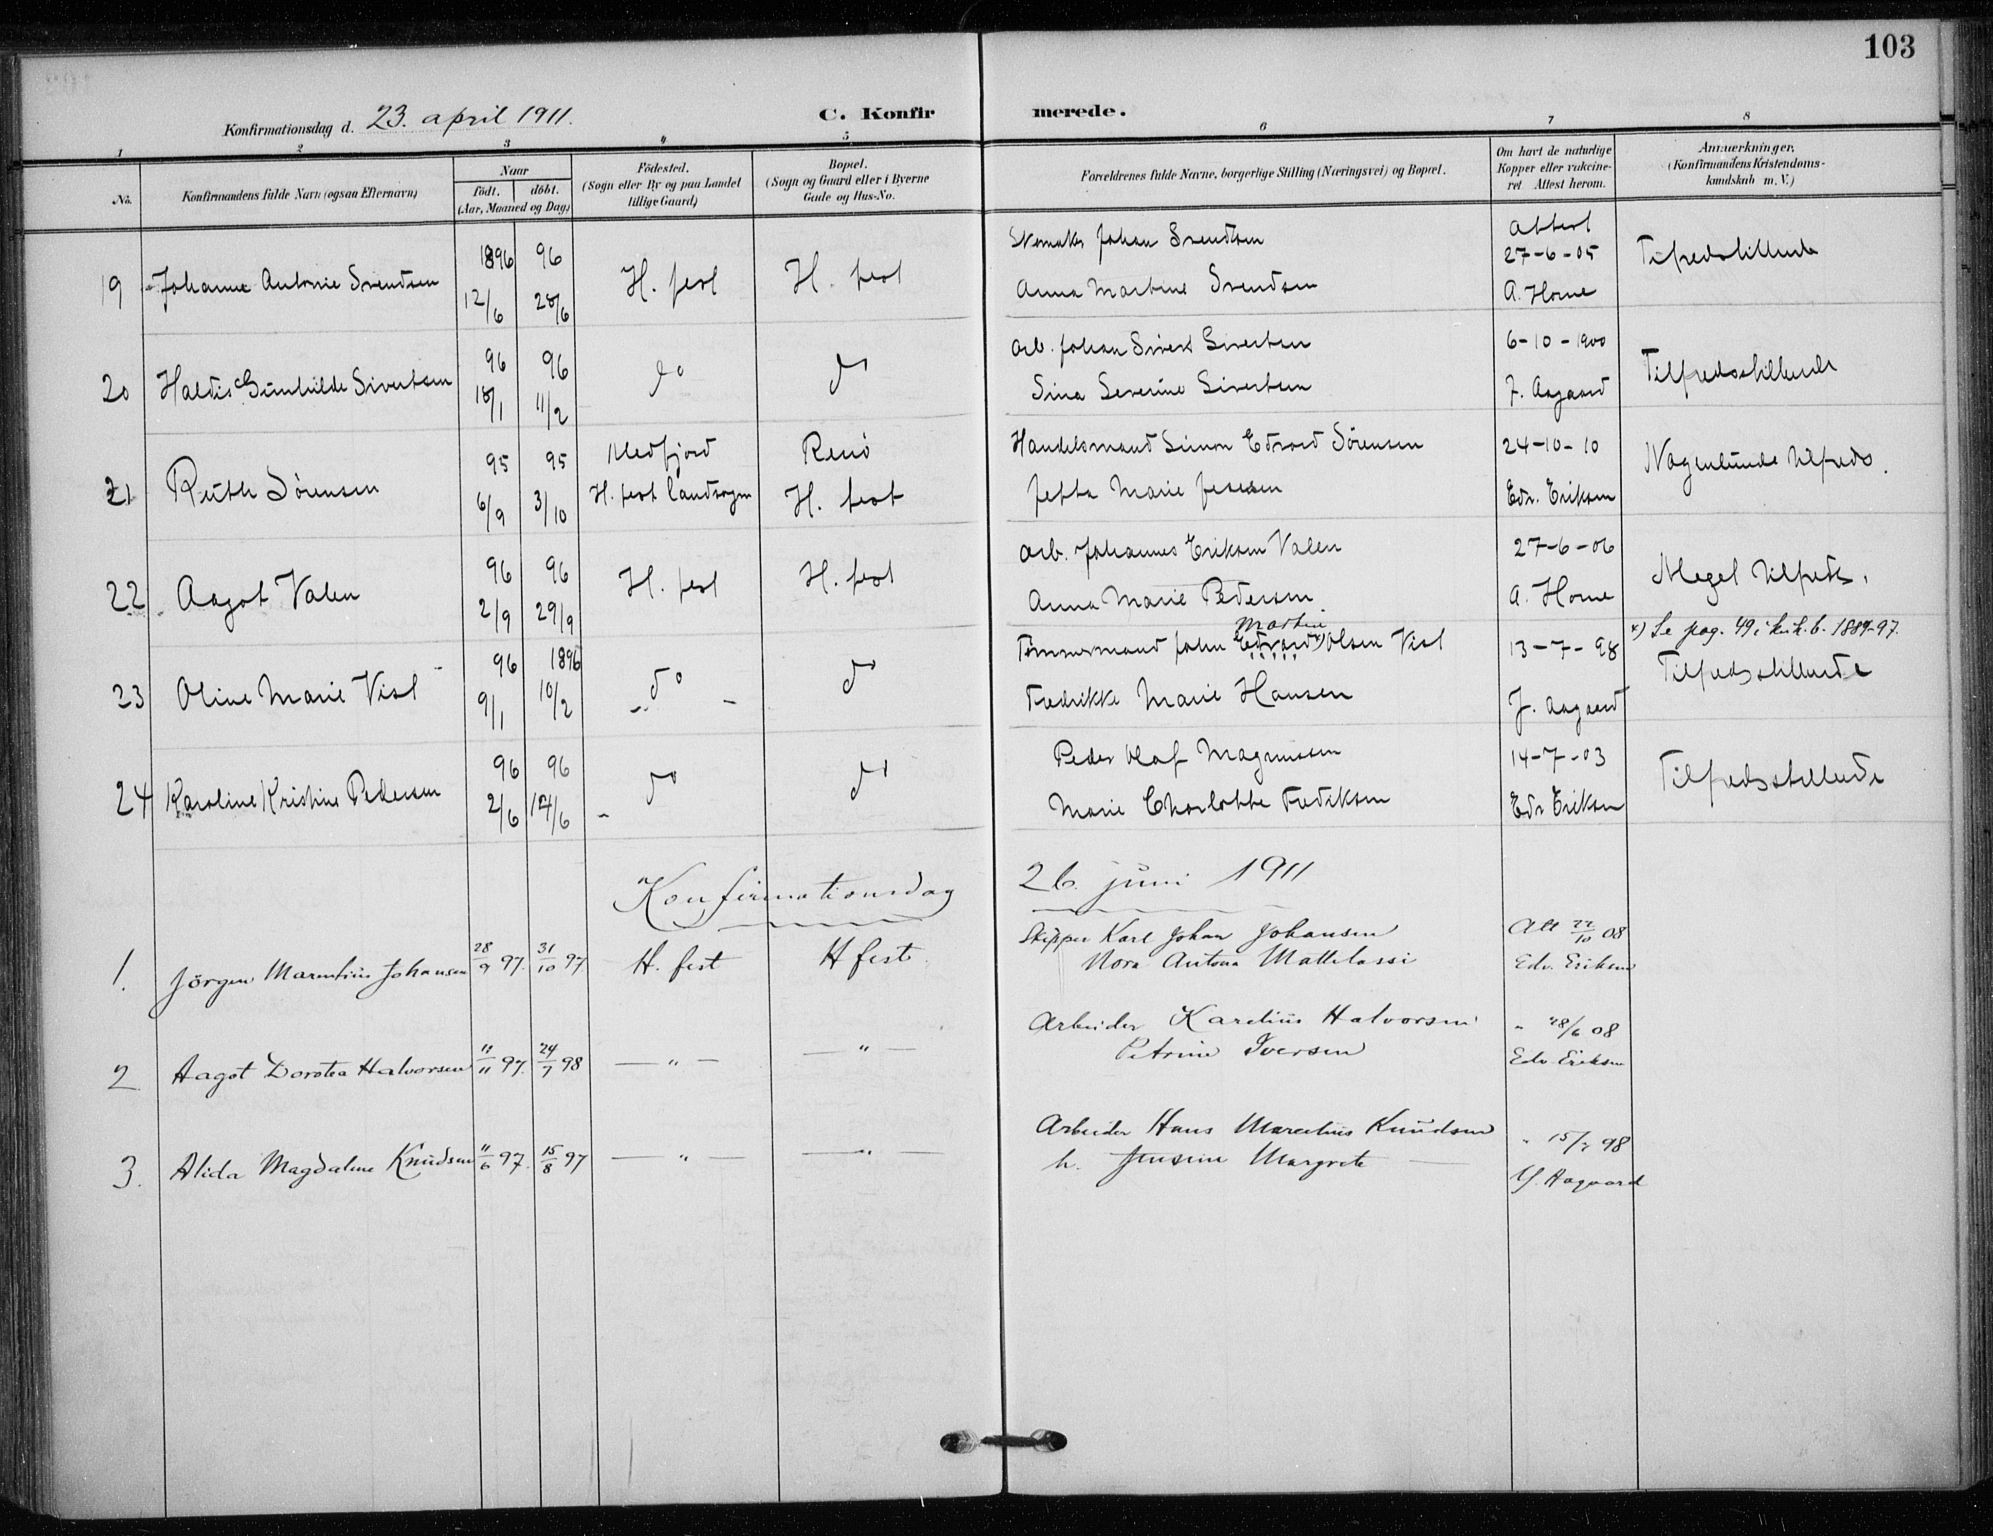 103
Konfirmationsdag d. 23. april 1911. C. Konfirmerede.
1 2 3 4 5 6 7 8
No. Konfirmandens fulde Navn (ogsaa Efternavn) Naar født. døbt. (Aar, Maaned og Dag) Fødested. (Sogn eller By og paa Landet tillige Gaard) Bopæl. (Sogn og Gaard eller i Byerne Gade og Hus-No. Forældrenes fulde Navne, borgerlige Stilling (Næringsvei) og Bopæl. Om havt de naturlige Kopper eller vakcineret Attest herom. Anmærkninger. (Konfirmandens Kristendomskundskab m. V.)
19 Johanne Antonie Svendsen 1896 12/6 96 28/6 H. fest H. fest Skomaker Johan Svendsen
Anna Martine Svendsen
Attest 27-6-05
A. Horne
Tifredstillende
20 Haldis Gunhilde Sivertsen 96 18/1 96 11/2 do do Arb. Johan Sivert Sivertsen
Sina Severine Sivertsen
6-10-1900
J. Aagaard
Tilfredsstillende
21 Ruth Sørensen 95 6/9 95 3/10 Kledfjord
H. fest landsogn
Renø
H. fest
Handelsmand Simon Edvard Sørensen
Jetta Marie Jensen
24-10-10
Edv. Eriksen
Nogenlunde tilfreds.
22 Aagot Valen 96 2/9 96 29/9 H. fest H. fest Arb. Johannes Eriksen Valen
Anna Marie Pedersen
27-6-06
A. Horne
Meget tilfreds.
23 Oline Marie Vist 96 9/1 1896 10/2 do do Martin
Tømmermand John Edvard x) Olsen Vist
Fredrikke Marie Hansen
13-7-98
J. Aagaard
x) Se pag. 49 i k.b. 1884-97.
Tilfredsstillende
24 Karoline Kristine Pedersen 96 2/6 96 14/6 do do Peder Olaf Magnussen
Marie Charlotte Fredriksen
14-7-03
Edv Eriksen
Tilfredsstillende
Konfirmationsdag 26. juni 1911
1. Jørgen Marentius Johansen 28/9 97. 31/10 97 H. fest H fest. Skipper Karl Johan Johansen
Nora Antona Mattilassi
Att 22/10 08
Edv. Eriksen
2 Aagot Dorotea Halvorsen 11/11 97. 24/7 98 — " — — " — Arbeider Karelius Halvorsen
Petrine Iversen
" 28/6 08
Edv Eriksen
3. Alida Magdalene Knudsen 11/6 97. 15/8 97 — " — — " — Arbeider Hans Marelius Knudsen
h. Jensine Margrete —
" 15/7 98
J. Aagaard